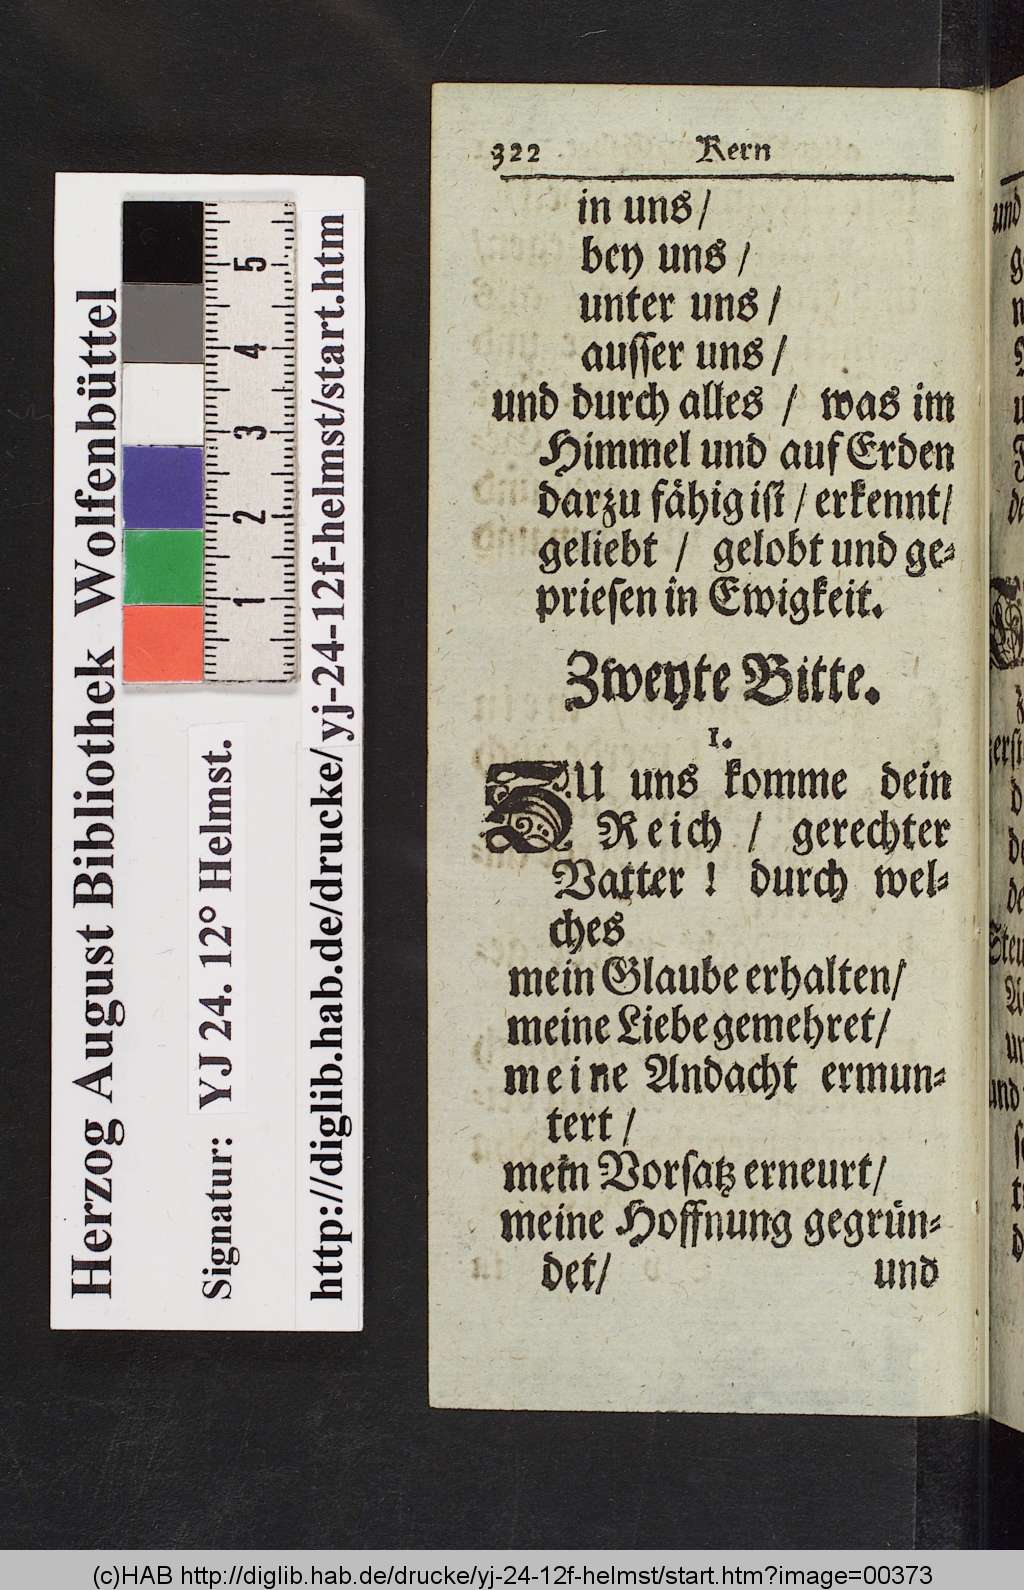 322 Kern
in uns/
bey uns /
unter uns /
ausser uns /
und durch alles / was im
Himmel und auf Erden
darzu fähig ist / erkennt/
geliebt / gelobt und ge-
priesen in Ewigkeit.
Zweyte Bitte.
1.
ZU uns komme dein
Reich / gerechter
Vatter ! durch wel-
ches
mein Glaube erhalten/
meine Liebe gemehret/
meine Andacht ermun-
tert /
mein Vorsatz erneurt/
meine Hoffnung gegrün-
det/ und
Herzog August Bibliothek Wolfenbüttel
Signatur: YJ 24. 12° Helmst.
http://diglib.hab.de/drucke/yj-24-12f-helmst/start.htm
5
4
3
2
1
(c)HAB http://diglib.hab.de/drucke/yj-24-12f-helmst/start.htm?image=00373